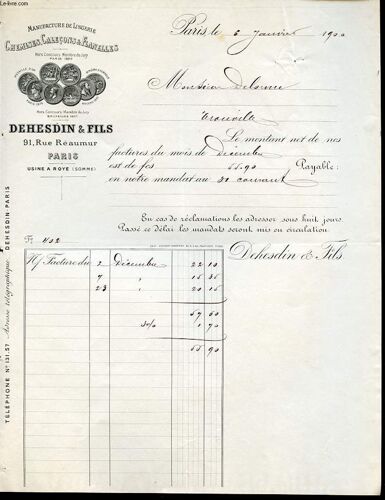 MANUFACTURE DE LINGERIE
CHEMISES, CALEÇONS & FLANELLES
Hors Concours Membre du Jury
PARIS
Hors Concours Membre du Jury
BRUXELLES 1897
DEHESDIN & FILS
91, Rue Réaumur
PARIS
USINE A ROYE (SOMME)
Paris le 6 Janvier 1900
Monsieur
Trouville
Le montant net de nos
factures du mois de Décembre
est de fcs 55.90 Payable:
en notre mandat au 31 courant
En cas de réclamations les adresser sous huit jours.
Passé ce délai les mandats seront mis en circulation.
Dehesdin & Fils
402
N/ Facture du 2 Décembre 22 10
7 " 15 35
23 " 20 15
57 60
3% 1 70
55 90
TÉLÉPHONE N° 131.57 — Adresse télégraphique: DEHESDIN-PARIS